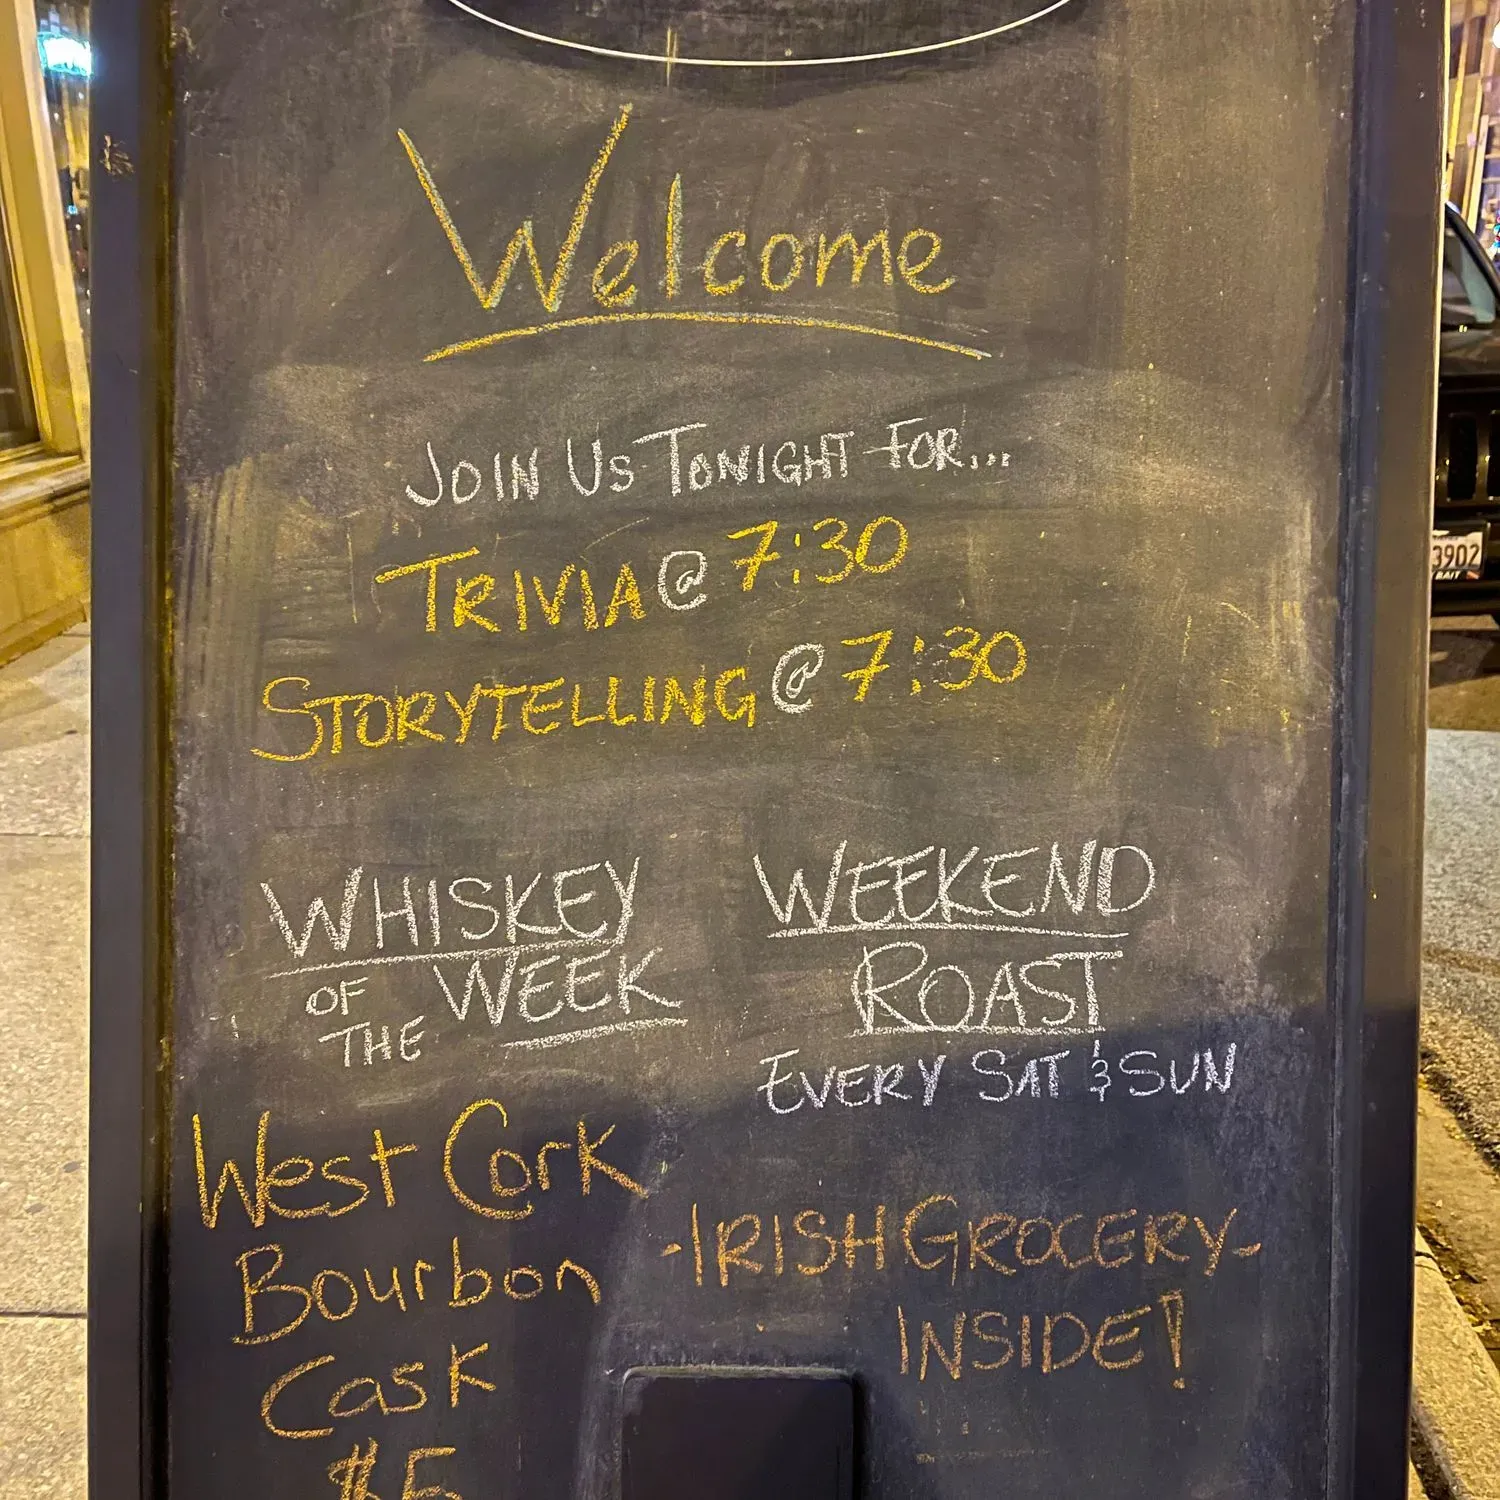 Welcome
JOIN US TONIGHT FOR...
TRIVIA @ 7:30
STORYTELLING @ 7:30
WHISKEY
OF THE WEEK
West Cork
Bourbon
Cask
$5
WEEKEND
ROAST
EVERY SAT & SUN
-IRISH GROCERY-
INSIDE!
3902
BAIT